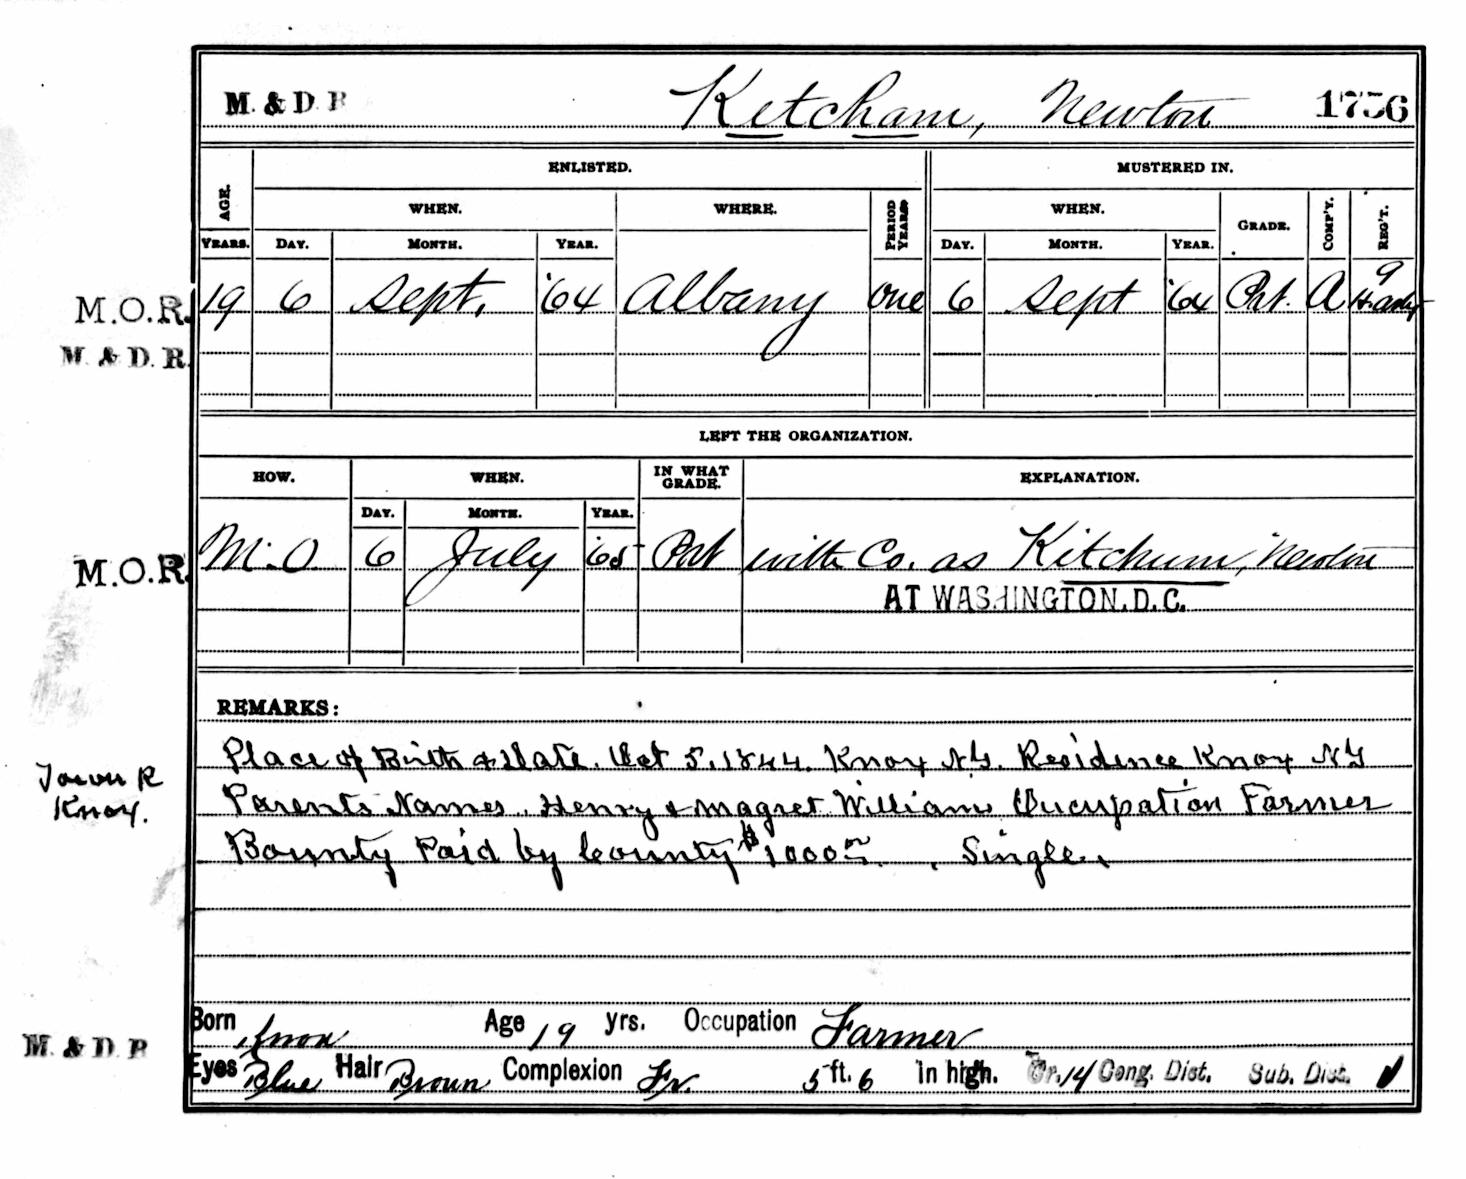 M. & D. R. Ketcham, Newton 1756
ENLISTED. MUSTERED IN.
AGE. WHEN. WHERE. PERIOD YEARS WHEN. GRADE. COMP'Y. REG'T.
YEARS. DAY. MONTH. YEAR. DAY. MONTH. YEAR.
M.O.R. 19 6 Sept. '64 Albany one 6 Sept '64 Pvt. A 9 H. Arty
M. & D. R.
LEFT THE ORGANIZATION.
HOW. WHEN. IN WHAT GRADE. EXPLANATION.
DAY. MONTH. YEAR.
M.O.R. M.O 6 July '65 Pvt with Co. as Kitchum, Newton
AT WASHINGTON, D.C.
REMARKS:
Place of Birth & Date. Oct 5, 1844. Knox N.Y. Residence Knox N.Y
Town R Knox. Parents Names. Henry & Magret William Occupation Farmer
Bounty Paid by County $1000 00. Single.
Born Knox Age 19 yrs. Occupation Farmer
M. & D. R. Eyes Blue Hair Brown Complexion Fr. 5 ft. 6 in high. Cr. 14 Cong. Dist. Sub. Dist. ✓